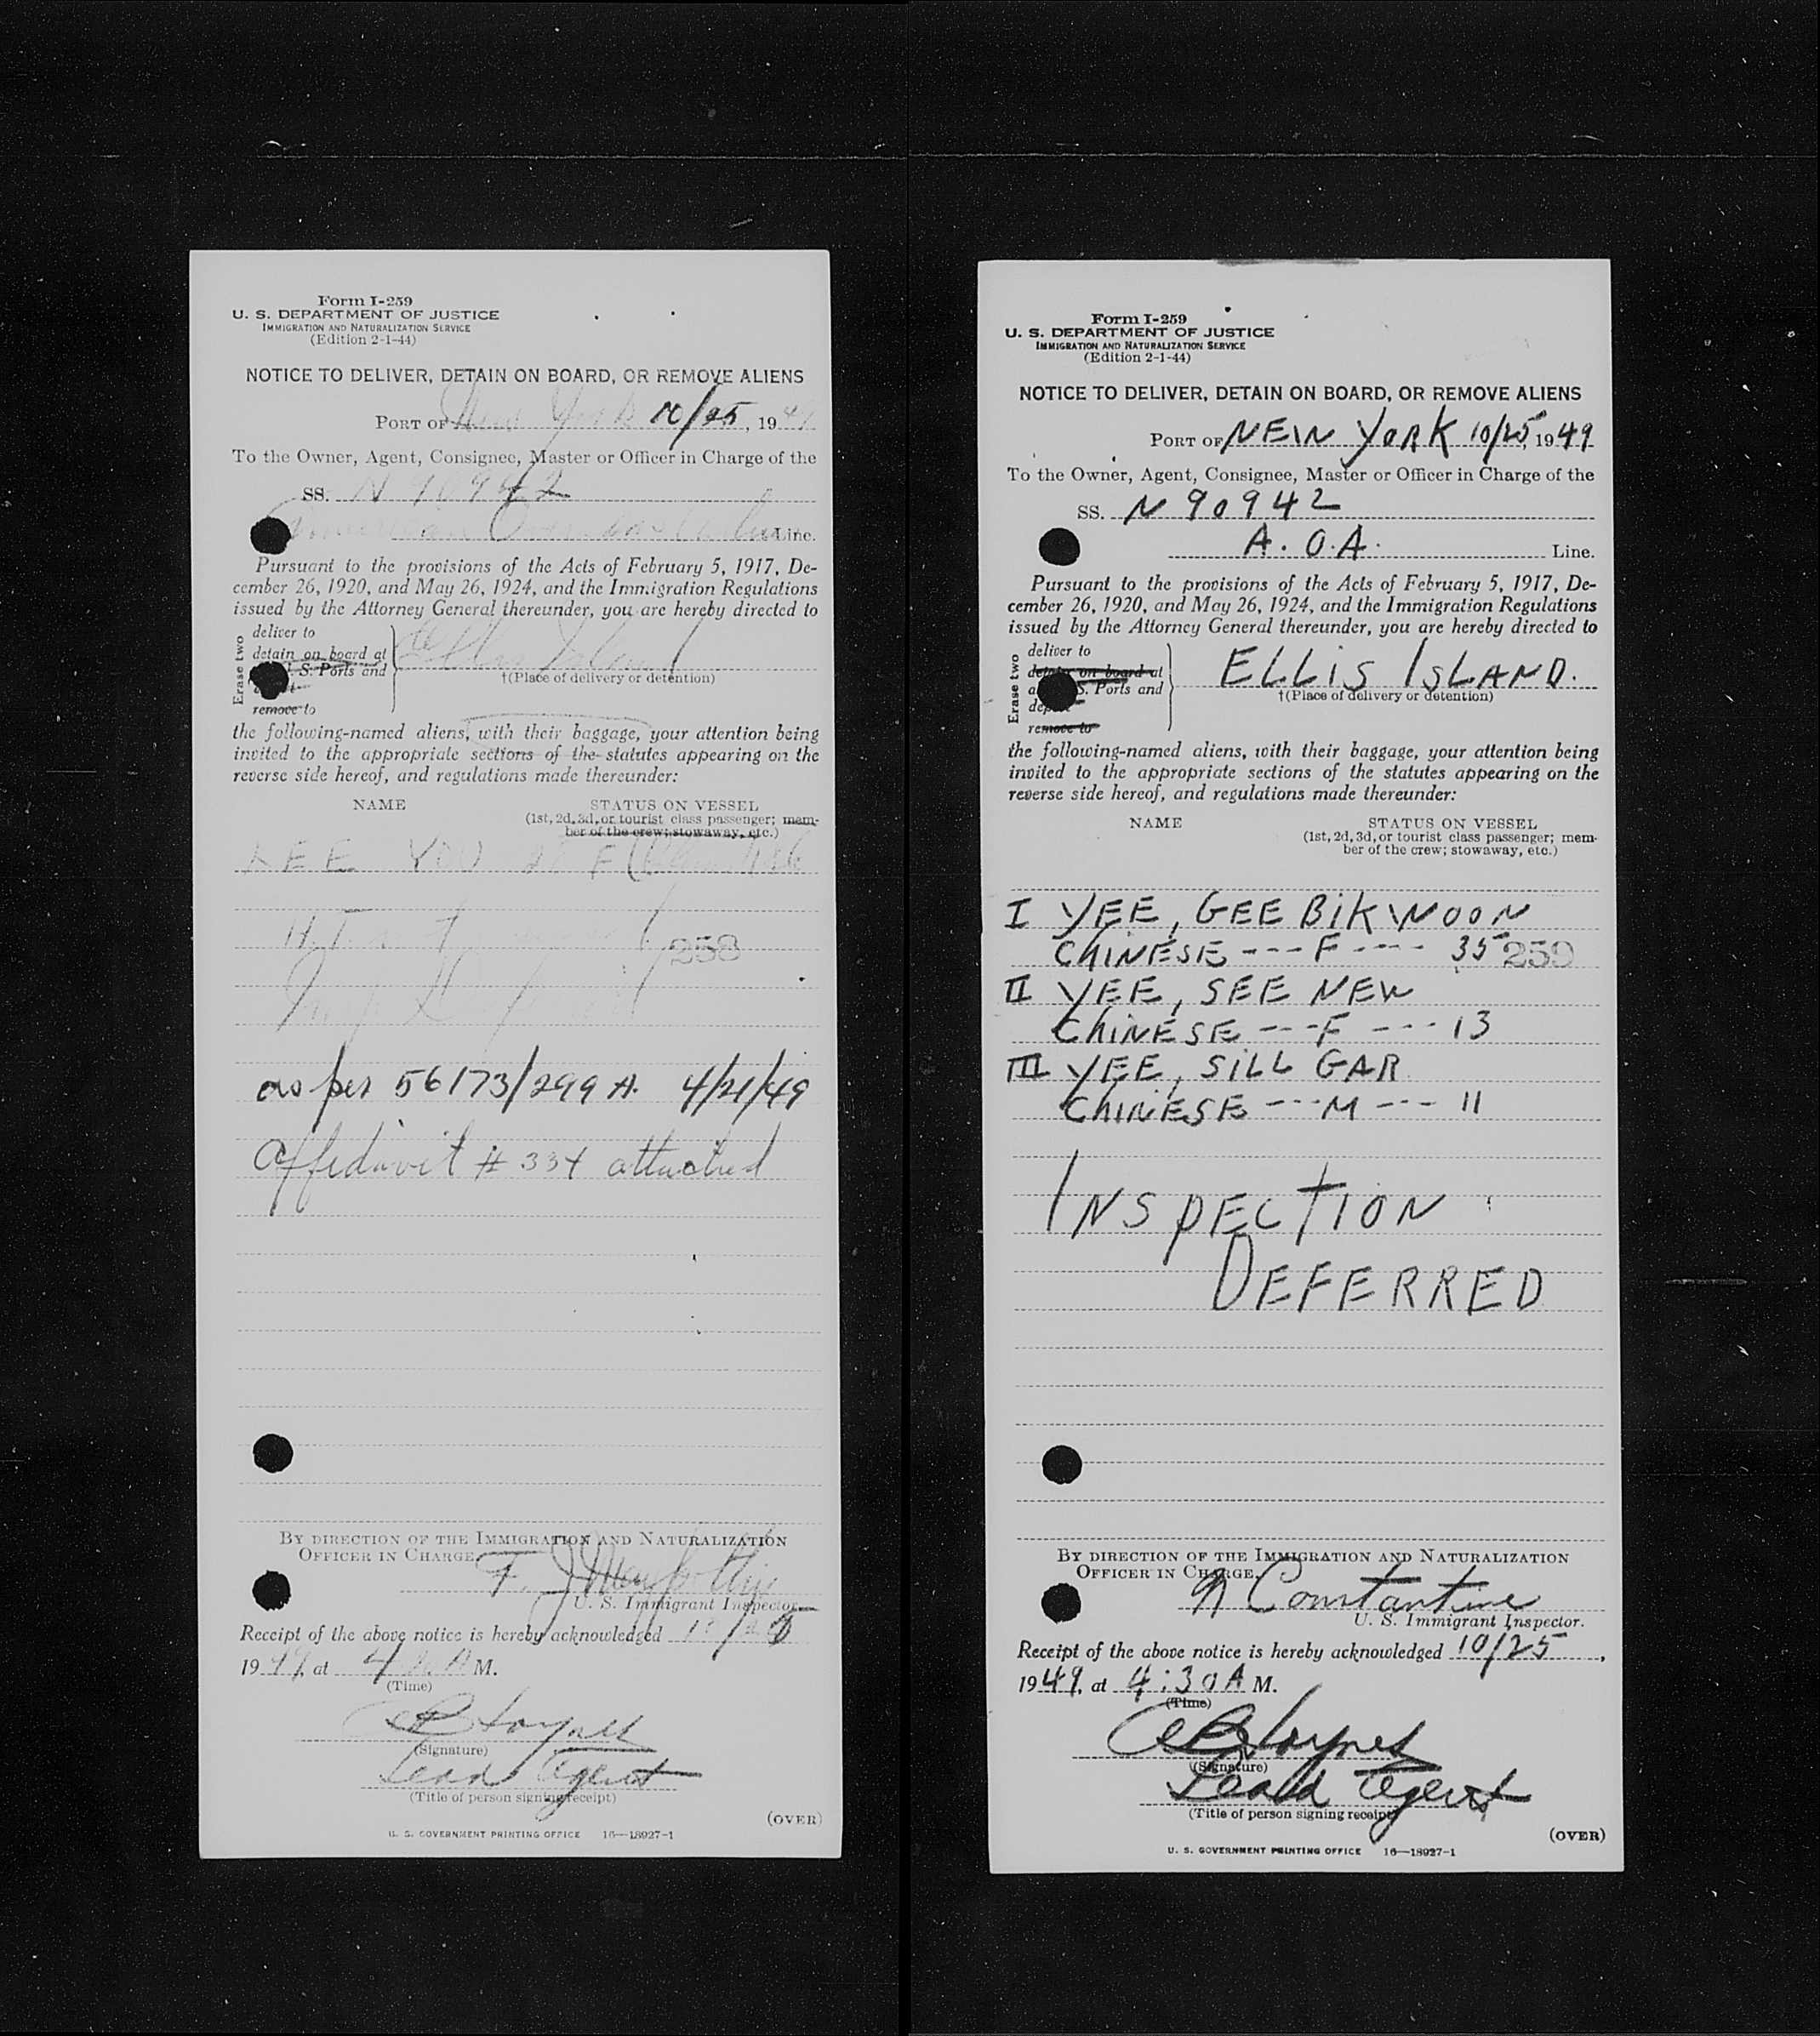 Form I-259
U. S. DEPARTMENT OF JUSTICE
IMMIGRATION AND NATURALIZATION SERVICE
(Edition 2-1-44)
NOTICE TO DELIVER, DETAIN ON BOARD, OR REMOVE ALIENS
PORT OF New York 10/25, 1949
To the Owner, Agent, Consignee, Master or Officer in Charge of the
SS. N 90942
American Overseas Line.
Pursuant to the provisions of the Acts of February 5, 1917, De-
cember 26, 1920, and May 26, 1924, and the Immigration Regulations
issued by the Attorney General thereunder, you are hereby directed to
Erase two
deliver to
detain on board at
S. Ports and
remove to
Ellis Island
†(Place of delivery or detention)
the following-named aliens, with their baggage, your attention being
invited to the appropriate sections of the statutes appearing on the
reverse side hereof, and regulations made thereunder:
NAME STATUS ON VESSEL
(1st, 2d, 3d, or tourist class passenger; mem-
ber of the crew; stowaway, etc.)
LEE YOU F
258
as per 56173/299 A. 4/21/49
Affidavit # 334 attached
BY DIRECTION OF THE IMMIGRATION AND NATURALIZATION
OFFICER IN CHARGE.
F. J.
U. S. Immigrant Inspector.
Receipt of the above notice is hereby acknowledged 10/25
1949, at 4 A M.
(Time)
(Signature)
Lead Agent
(Title of person signing receipt)
(OVER)
U. S. GOVERNMENT PRINTING OFFICE 16—18927-1
Form I-259
U. S. DEPARTMENT OF JUSTICE
IMMIGRATION AND NATURALIZATION SERVICE
(Edition 2-1-44)
NOTICE TO DELIVER, DETAIN ON BOARD, OR REMOVE ALIENS
PORT OF NEW YORK 10/25, 1949
To the Owner, Agent, Consignee, Master or Officer in Charge of the
SS. N 90942
A. O. A. Line.
Pursuant to the provisions of the Acts of February 5, 1917, De-
cember 26, 1920, and May 26, 1924, and the Immigration Regulations
issued by the Attorney General thereunder, you are hereby directed to
Erase two
deliver to
detain on board at
S. Ports and
remove to
ELLIS ISLAND.
†(Place of delivery or detention)
the following-named aliens, with their baggage, your attention being
invited to the appropriate sections of the statutes appearing on the
reverse side hereof, and regulations made thereunder:
NAME STATUS ON VESSEL
(1st, 2d, 3d, or tourist class passenger; mem-
ber of the crew; stowaway, etc.)
I YEE, GEE BIK WOON
CHINESE --- F ---- 35 259
II YEE, SEE NEW
CHINESE --- F --- 13
III YEE, SILL GAR
CHINESE --- M --- 11
INSPECTION
DEFERRED
BY DIRECTION OF THE IMMIGRATION AND NATURALIZATION
OFFICER IN CHARGE.
N Constantine
U. S. Immigrant Inspector.
Receipt of the above notice is hereby acknowledged 10/25,
1949, at 4:30 A M.
(Time)
(Signature)
Lead Agent
(Title of person signing receipt)
(OVER)
U. S. GOVERNMENT PRINTING OFFICE 16—18927-1